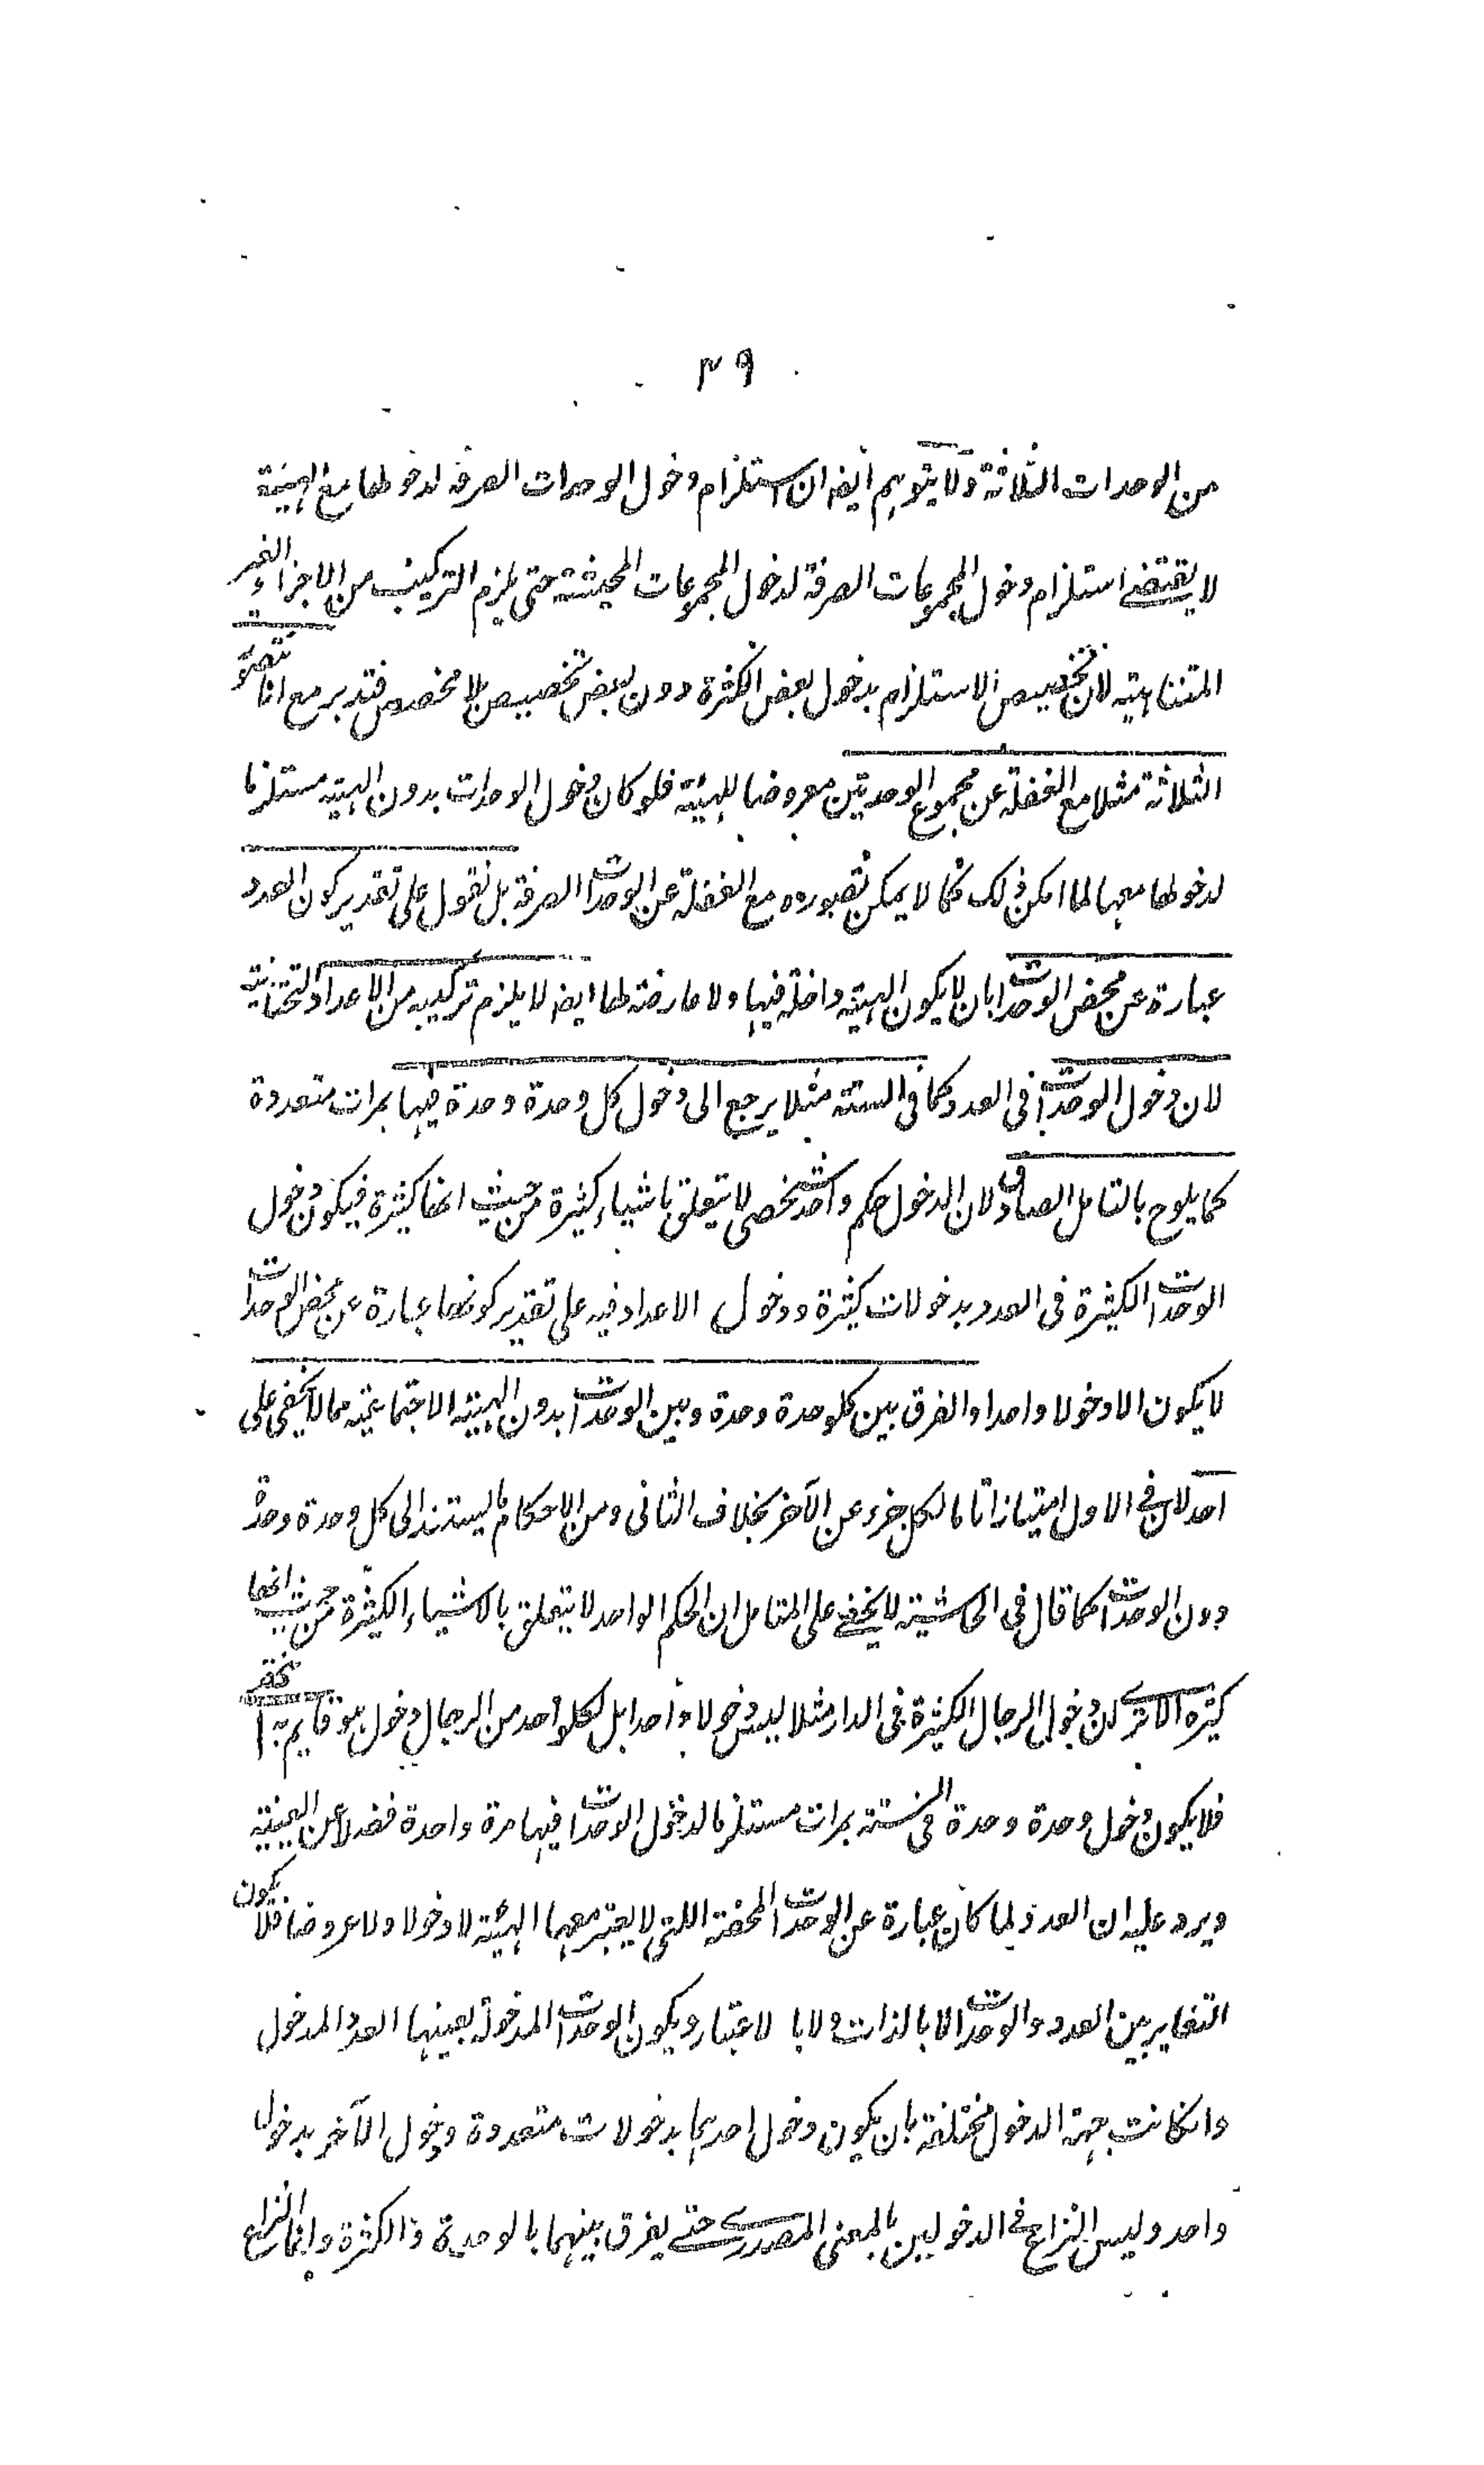 ٣٩
من الوحدات الثلاثة ولا يتوهم ايضا ان استلزام دخول الوحدات الصرفة لدخولها مع الهيئة
لا يقتضے استلزام دخول المجموعات الصرفة لدخول المجموعات المحيثة حتى يلزم التركيب من الاجزاء الغير
المتناهية لان تخصيص الاستلزام بدخول بعض الكثرة دون بعض تخصيص بلا مخصص فتدبر مع انا نتصور
الثلاثة مثلا مع الغفلة عن مجموع الوحدتين معروضا للهيئة فلو كان دخول الوحدات بدون الهيئة مستلزما
لدخولها معها لما امكن ذلك كما لا يمكن تصوره مع الغفلة عن الوحدات الصرفة بل نقول على تقدير كون العدد
عبارة عن محض الوحدات بان لا يكون الهيئة داخلة فيها ولا عارضة لها ايضا لا يلزم تركيبه من الاعداد التحتانية
لان دخول الوحدات فى العدد كما فى الستة مثلا يرجع الى دخول كل وحدة وحدة فيها بمرات متعددة
كما يلوح بالتامل الصادق لان الدخول حكم واحد شخصى لا يتعلق باشياء كثيرة من حيث انها كثيرة فيكون دخول
الوحدات الكثيرة فى العدد بدخولات كثيرة ودخول الاعداد فيه على تقدير كونها عبارة عن محض الوحدات
لا يكون الا دخولا واحدا والفرق بين كل وحدة وحدة وبين الوحدات بدون الهيئة الاجتماعية مما لا يخفى على
احد لان فى الاول امتيازا تاما لكل جزء عن الآخر بخلاف الثانى ومن الاحكام ما يستند الى كل وحدة وحدة
دون الوحدات كما قال فى الحاشية لا يخفے على المتامل ان الحكم الواحد لا يتعلق بالاشياء الكثيرة من حيث انها
كثيرة الا ترے ان دخول الرجال الكثيرة فى الدار مثلا ليس دخولا واحدا بل لكل واحد من الرجال دخول هو قايم به
فلا يكون دخول وحدة وحدة فى الستة بمرات مستلزما لدخول الوحدات فيها مرة واحدة فضلا عن العينية
ويرد عليه ان العدد لما كان عبارة عن الوحدات المحضة اللتى لا يعتبر معها الهيئة لا دخولا ولا عروضا فلا يكون
التغاير بين العدد والوحدات لا بالذات ولا بالاعتبار ويكون الوحدات المدخولة بعينها العدد المدخول
وان كانت جهة الدخول مختلفة بان يكون دخول احديها بدخولات متعددة ودخول الآخر بدخول
واحد وليس النزاع فى الدخولين بالمعنى المصدرے حتے يفرق بينهما بالوحدة والكثرة وانما النزاع